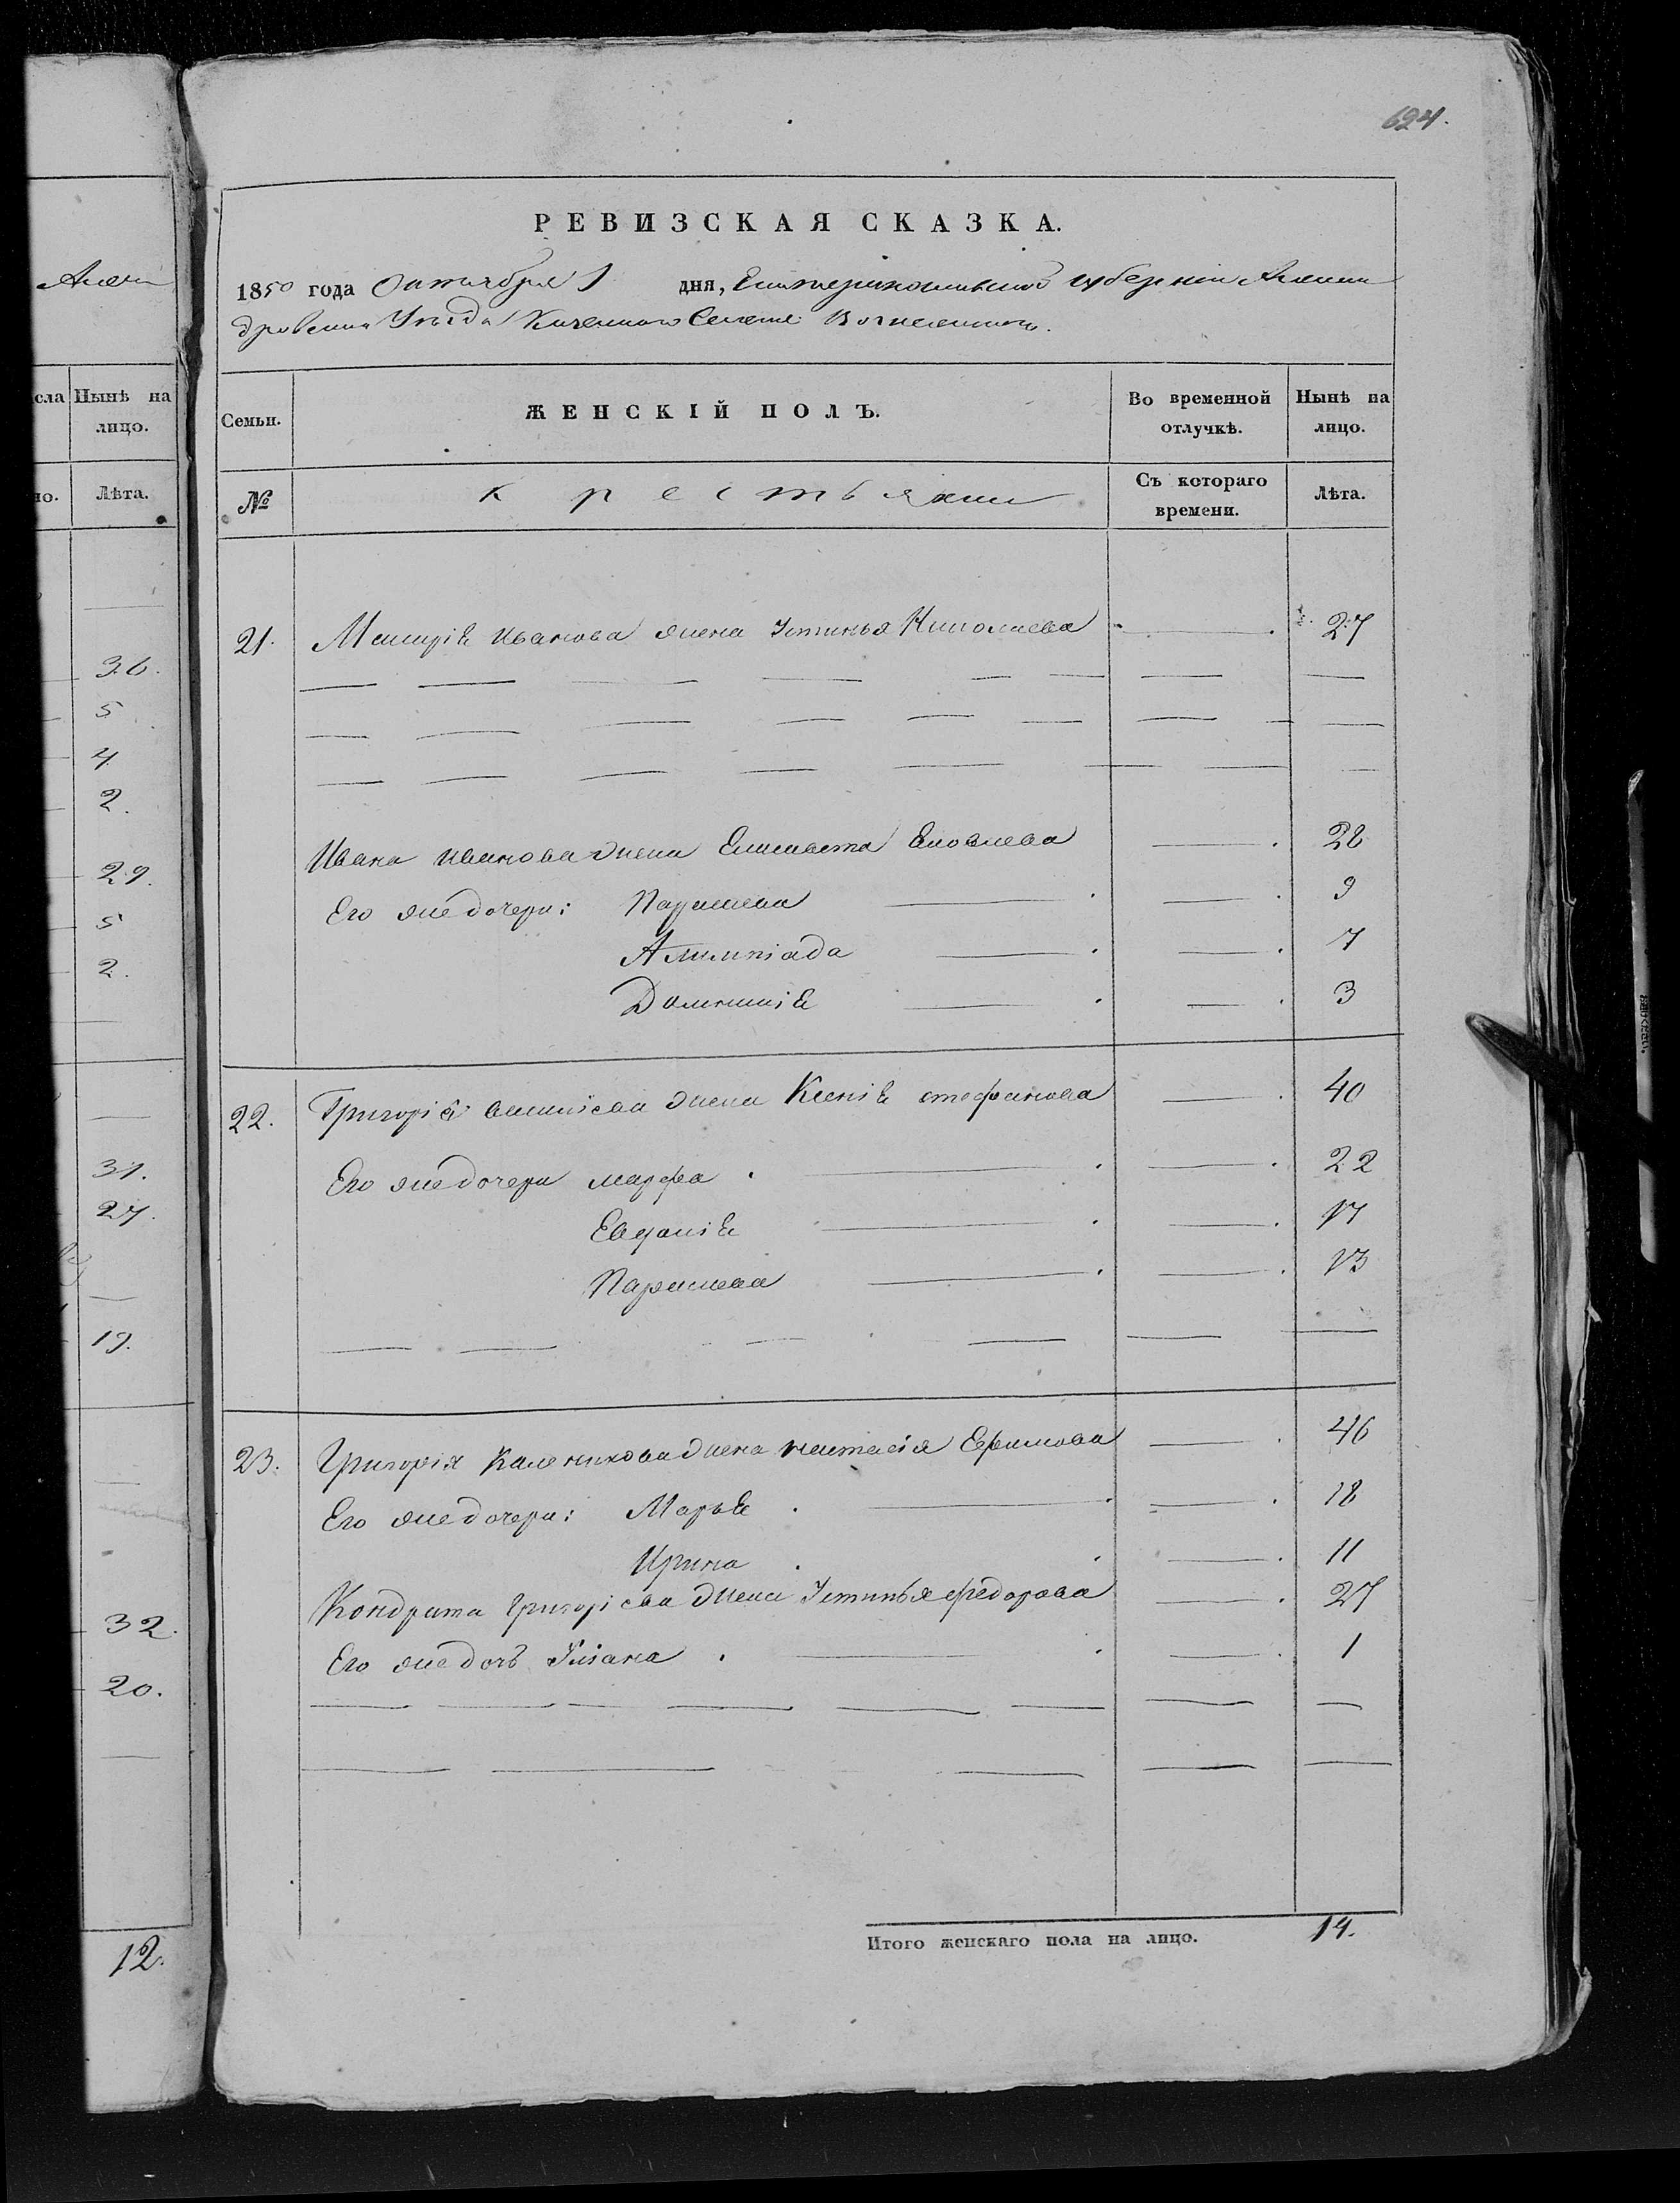 Алек
сла Нынѣ на
лицо.
но. Лѣта.
36.
5
4
2.
29.
5
2.
31.
27.
19.
32.
20.
12.
624.
РЕВИЗСКАЯ СКАЗКА.
1850 года Октября 1 дня, Екатеринославской губерніи Алексан
дровскаго Уѣзда Казеннаго Селенія Вознесенскаго.
Семьи. ЖЕНСКІЙ ПОЛЪ. Во временной отлучкѣ. Нынѣ на лицо.
№ крестьяне Съ котораго времени. Лѣта.
21. Иванова жена Устинья Николаева 27
Ивана Иванова жена Елисавета Яковлева 28
Его же дочери: Параскева 9
Алимпіада 7
Домникія 3
22. Григорія жена Ксенія стефанова 40
Его же дочери марфа 22
Евдокія 17
Параскева 13
23. Григорія Каленикова жена настасія Ефимова 46
Его же дочери: Марья 18
Ирина 11
Кондрата Григоріева жена Устинья федорова 27
Его же дочь Уліана 1
Итого женскаго пола на лицо. 14.